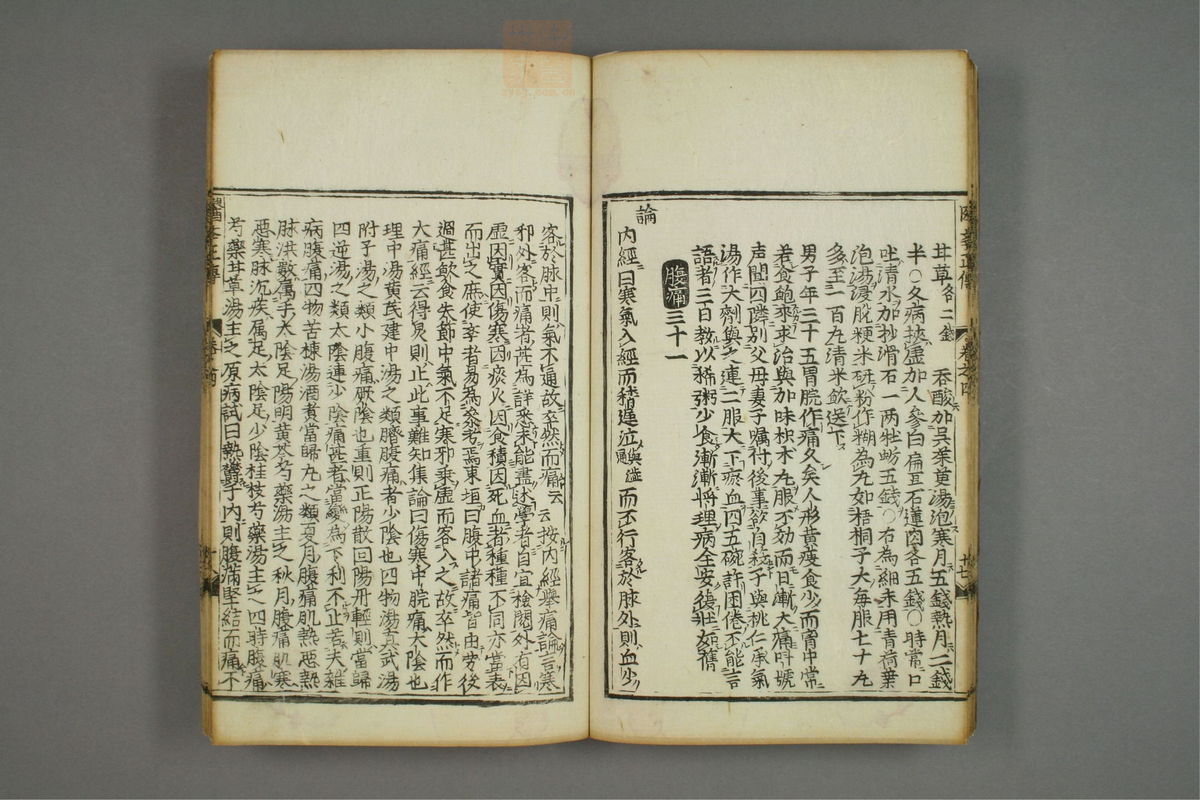 甘草各二錢 吞酸加吳茱萸湯泡寒月五錢熱月二錢
半○久病挾虛加人參白扁豆石蓮肉各五錢○時常口
吐清水加抄滑石一兩牡蛎五錢○右為細末用青荷葉
泡湯浸脫粳米研粉作糊為丸如梧桐子大每服七十丸
多至一百丸清米飲送下
男子年三十五胃脘作痛久矣人形黄瘦食少而胷中常
若食飽來求治與加味枳术丸服不効而日漸大痛叫號
声聞四隣別父母妻子嘱付後事欲自殺予與桃仁承氣
湯作大劑與之連二服大下瘀血四五碗許困倦不能言
語者三日教以稀粥少食漸漸將理病全安復壯如舊
腹痛三十一
論
内經曰寒氣入經而稽遲泣與澁同而不行客於脉外則血少
客於脉中則氣不通故卒然而痛云云按内經舉痛論言寒
邪外客而痛者甚為詳悉未能盡述學者自宜檢閱外有因
虛因實因傷寒因痰火因食積因死血者種種不同亦當表
而出之庶使孝者易為參考焉東垣曰腹中諸痛皆由劳役
過甚飲食失節中氣不足寒邪乗虛而客入之故卒然而作
大痛經云得炅則止此事難知集論曰傷寒中脘痛太陰也
理中湯黄芪建中湯之類臍腹痛者少陰也四物湯真武湯
附子湯之類小腹痛厥陰也重則正陽散回陽丹輕則當歸
四逆湯之類太陰連少陰痛甚者當變為下利不止若夫雜
病腹痛四物苦楝湯酒煮當歸丸之類夏月腹痛肌熱惡熱
脉洪數属手太陰足陽明黄芩芍藥湯主之秋月腹痛肌寒
惡寒脉沉疾属足太陰足少陰桂枝芍藥湯主之四時腹痛
芍藥甘草湯主之原病試曰熱鬱于内則腹滿堅結而痛不